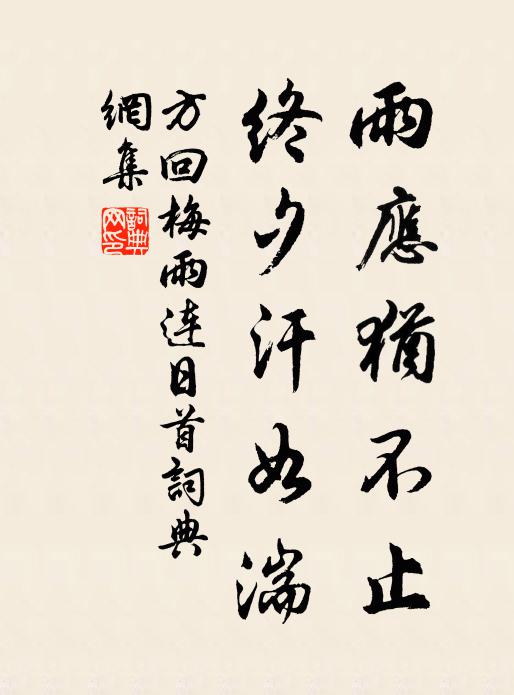 雨應猶不止
終夕汗如湍
方回梅雨连日首詞典
網集
詞典網印